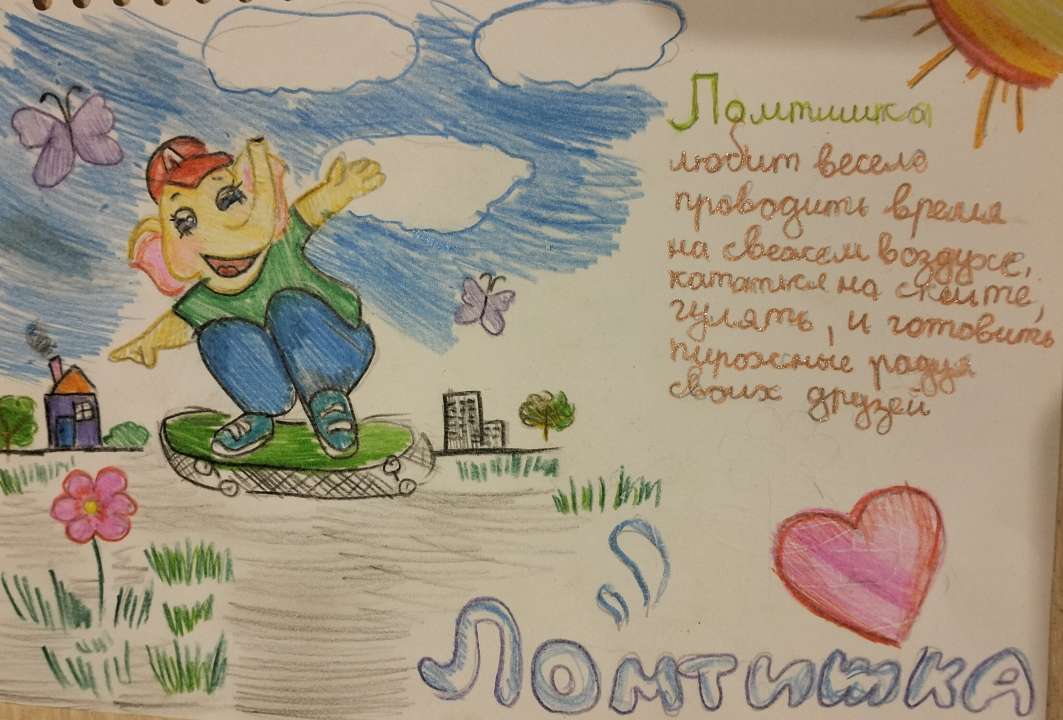 Ломтишка
любит весело
проводить время
на свежем воздухе,
кататься на скейте,
гулять, и готовить
пирожные радуя
своих друзей
Ломтишка